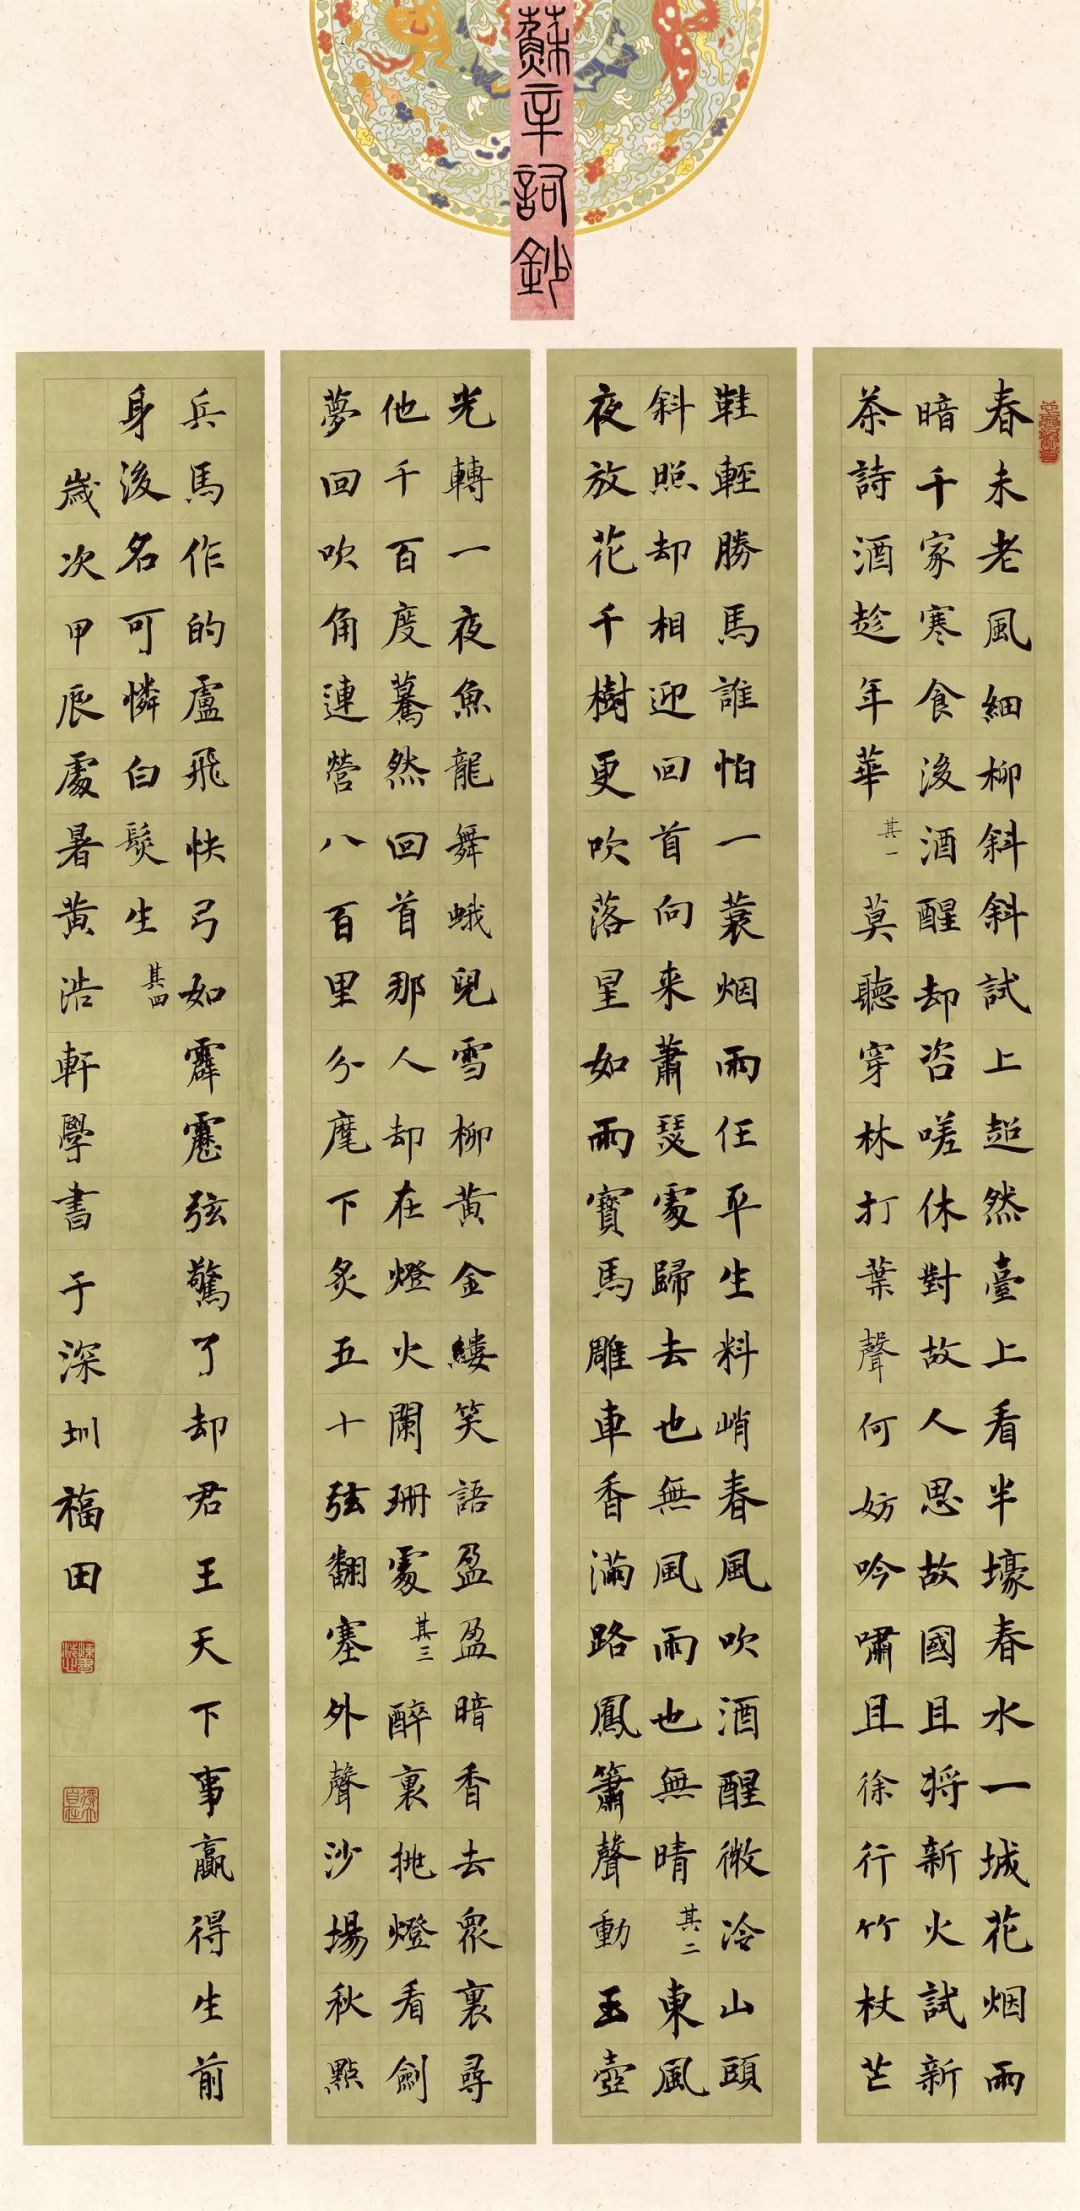 蘇辛詞鈔
春未老風細柳斜斜試上超然臺上看半壕春水一城花烟雨
暗千家寒食後酒醒却咨嗟休對故人思故國且將新火試新
茶詩酒趁年華 其一 莫聽穿林打葉聲何妨吟嘯且徐行竹杖芒
鞋輕勝馬誰怕一蓑烟雨任平生料峭春風吹酒醒微冷山頭
斜照却相迎回首向来蕭瑟處歸去也無風雨也無晴 其二 東風
夜放花千樹更吹落星如雨寶馬雕車香滿路鳳簫聲動玉壺
光轉一夜魚龍舞蛾兒雪柳黄金縷笑語盈盈暗香去衆裏尋
他千百度驀然回首那人却在燈火闌珊處 其三 醉裏挑燈看劍
夢回吹角連營八百里分麾下炙五十弦翻塞外聲沙場秋點
兵馬作的盧飛快弓如霹靂弦驚了却君王天下事贏得生前
身後名可憐白髮生 其四
歲次甲辰處暑黄浩軒學書于深圳福田